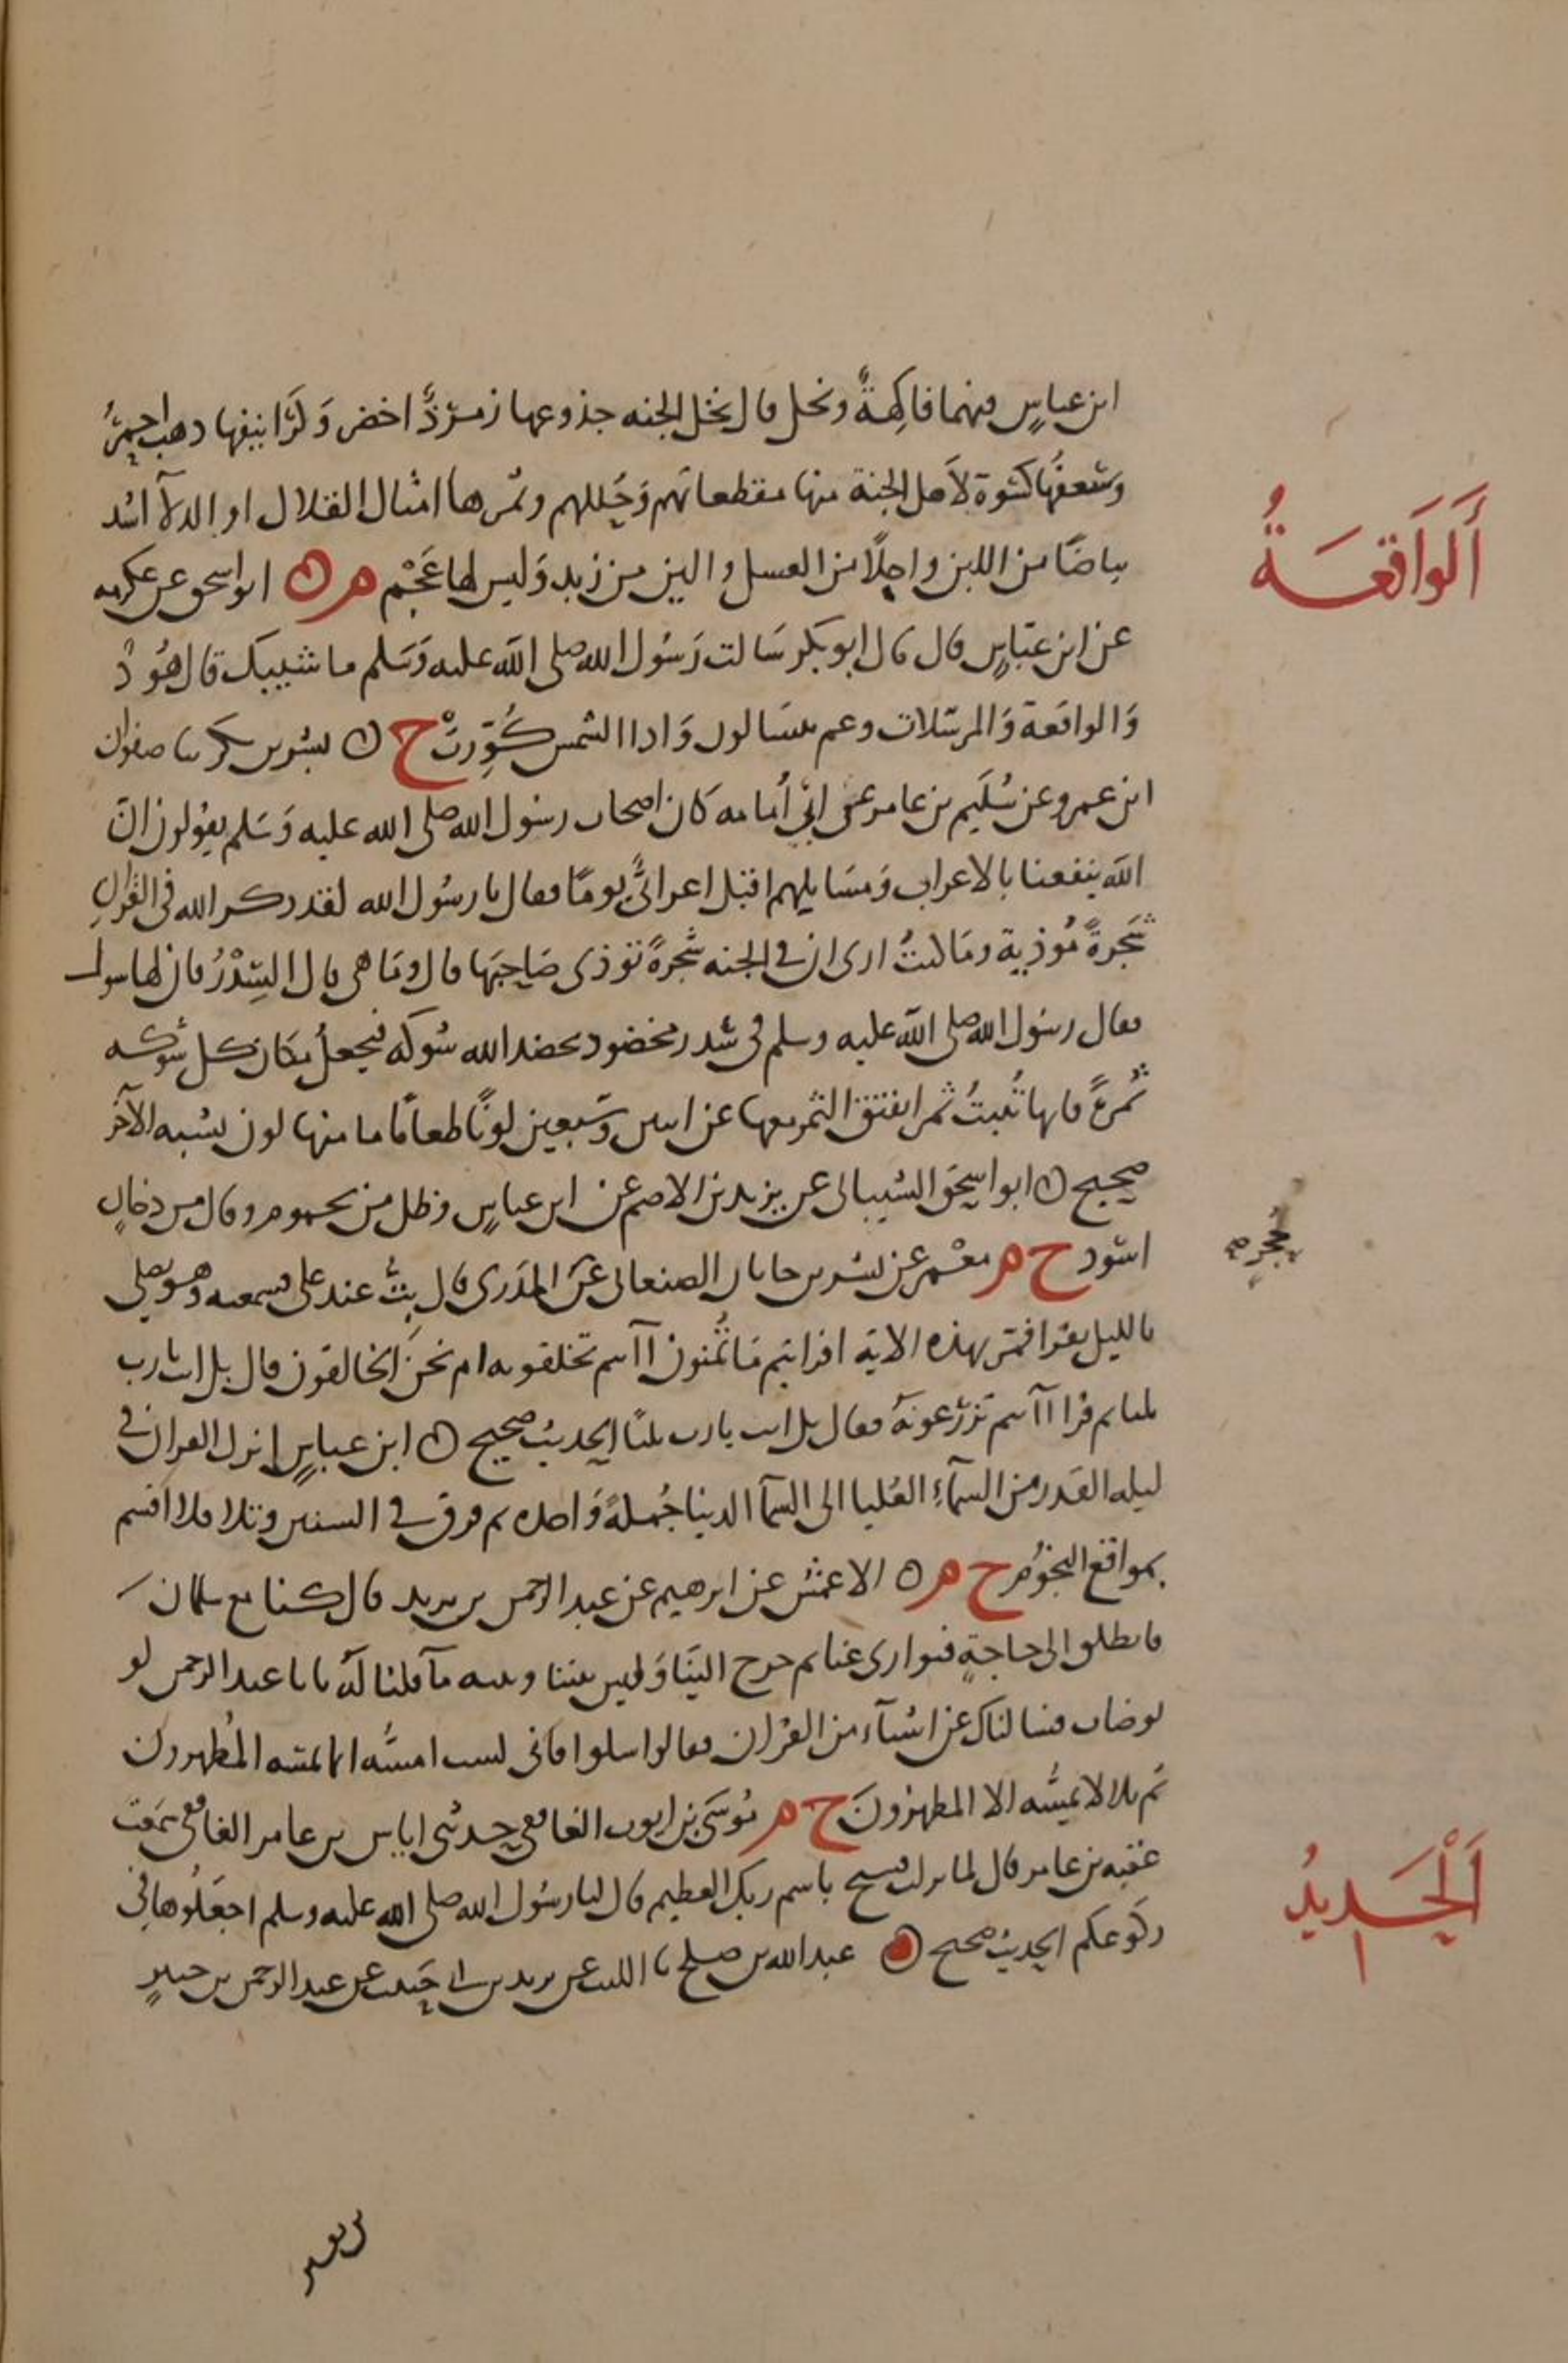 ابن عباس فيهما فاكهةٌ ونخل قال نخل الجنه جذوعها زمرّدٌ اخضر وَكَرَانيفها ذهب احمرُ
وسَعفُها كسْوة لأهل الجنة منها مقطعاتهم وَحُللهم وثمرها امثال القلال او الدلآ اشد
بياضًا من اللبن واحلًا من العسل والين من زبد وَليس لها عَجْم م ه ابو اسحق عن عكرمه
عن ابن عبّاسٍ قال قال ابو بكر سَالت رَسُول الله صلى الله عليه وَسَلم ما شيبك قال هُوْدٌ
وَالواقعَة وَالمرسَلات وعم يتسَالون وَاذا الشمس كُوِّرتْ خ ه بشر بن بكر ثنا صفوان
ابن عمرو عن سُلَيم بن عامر عن ابي أُمامه كان اصحاب رسُول الله صلى الله عليه وَسَلم يقولون انّ
الله ينفعنا بالاعراب وَمسَايلهم اقبل اعرابيٌّ يومًا فقال يا رسُول الله لقد ذكر الله في القرانِ
شَجرةً مُوذية ومَا كنتُ ارى ان في الجنه شجرةً توذى صَاحبَها قال ومَا هي قال السِّدْرُ فان لها شوكا
فقال رسُول الله صلى الله عليه وسلم في سدر مخضود يخضد الله شوكه فيجعلُ مكان كل شوكه
ثمرةً فانها تُنبتُ ثمرا يفتق الثمر معها عن اثنين وسَبعين لونًا طعامًا ما منها لون يشبه الآخر
صحيح ه ابو اسحق الشيباني عن يزيد بن الاصم عن ابن عباسٍ وظل من يحموم وقال من دخانٍ
اسود خ م معْمر عن شدّاد بن جابان الصنعاني عن حُجْر المدَري قال بتُّ عند علي فسمعته وهو يصلي
بالليل يقرا فمر بهذه الاية افرايتم مَا تُمنون أانتم تخلقونه ام نحن الخالقون قال بل انت يا رب
ثلثا ثم قرا أانتم تزرعُونهُ فقال بل انت يا رب ثلثًا الحديث صحيح ه ابن عباسٍ انزل القران في
ليله القدر من السمآءِ العُليا الى السمآ الدنيا جُملةً وَاحده ثم فرق في السنين وتلا فلا اقسم
بمواقع النجُوم خ م ه الاعمش عن ابرهيم عن عبد الرحمن بن يزيد قال كنا مع سلمان
فانطلق الى حاجةٍ فتوارى عنا ثم خرج الينَا وَليس بيننا وبينه مآ قلنا لهُ يا با عبد الرحمن لو
توضات فسالناك عن اشيآء من القران فقال سلوا فاني لست امسُّه انما يمسّه المُطهرون
ثم تلا لا يمسُّه الا المطهرونَ خ م مُوسَى بن ايوب الغافقي حدثني اياس بن عامر الغافقي سَمعت
عقبه بن عامر قال لما نزلت فسبح باسم ربك العظيم قال لنا رسُول الله صلى الله عليه وسلم اجعَلُوها في
ركوعكم الحديث صحيح ه عبد الله بن صلح نا الليث عن يزيد بن ابي حَبيب عن عبد الرحمن بن جبيرٍ
أَلوَاقعَةُ
حُجْر
اَلْحَديدُ